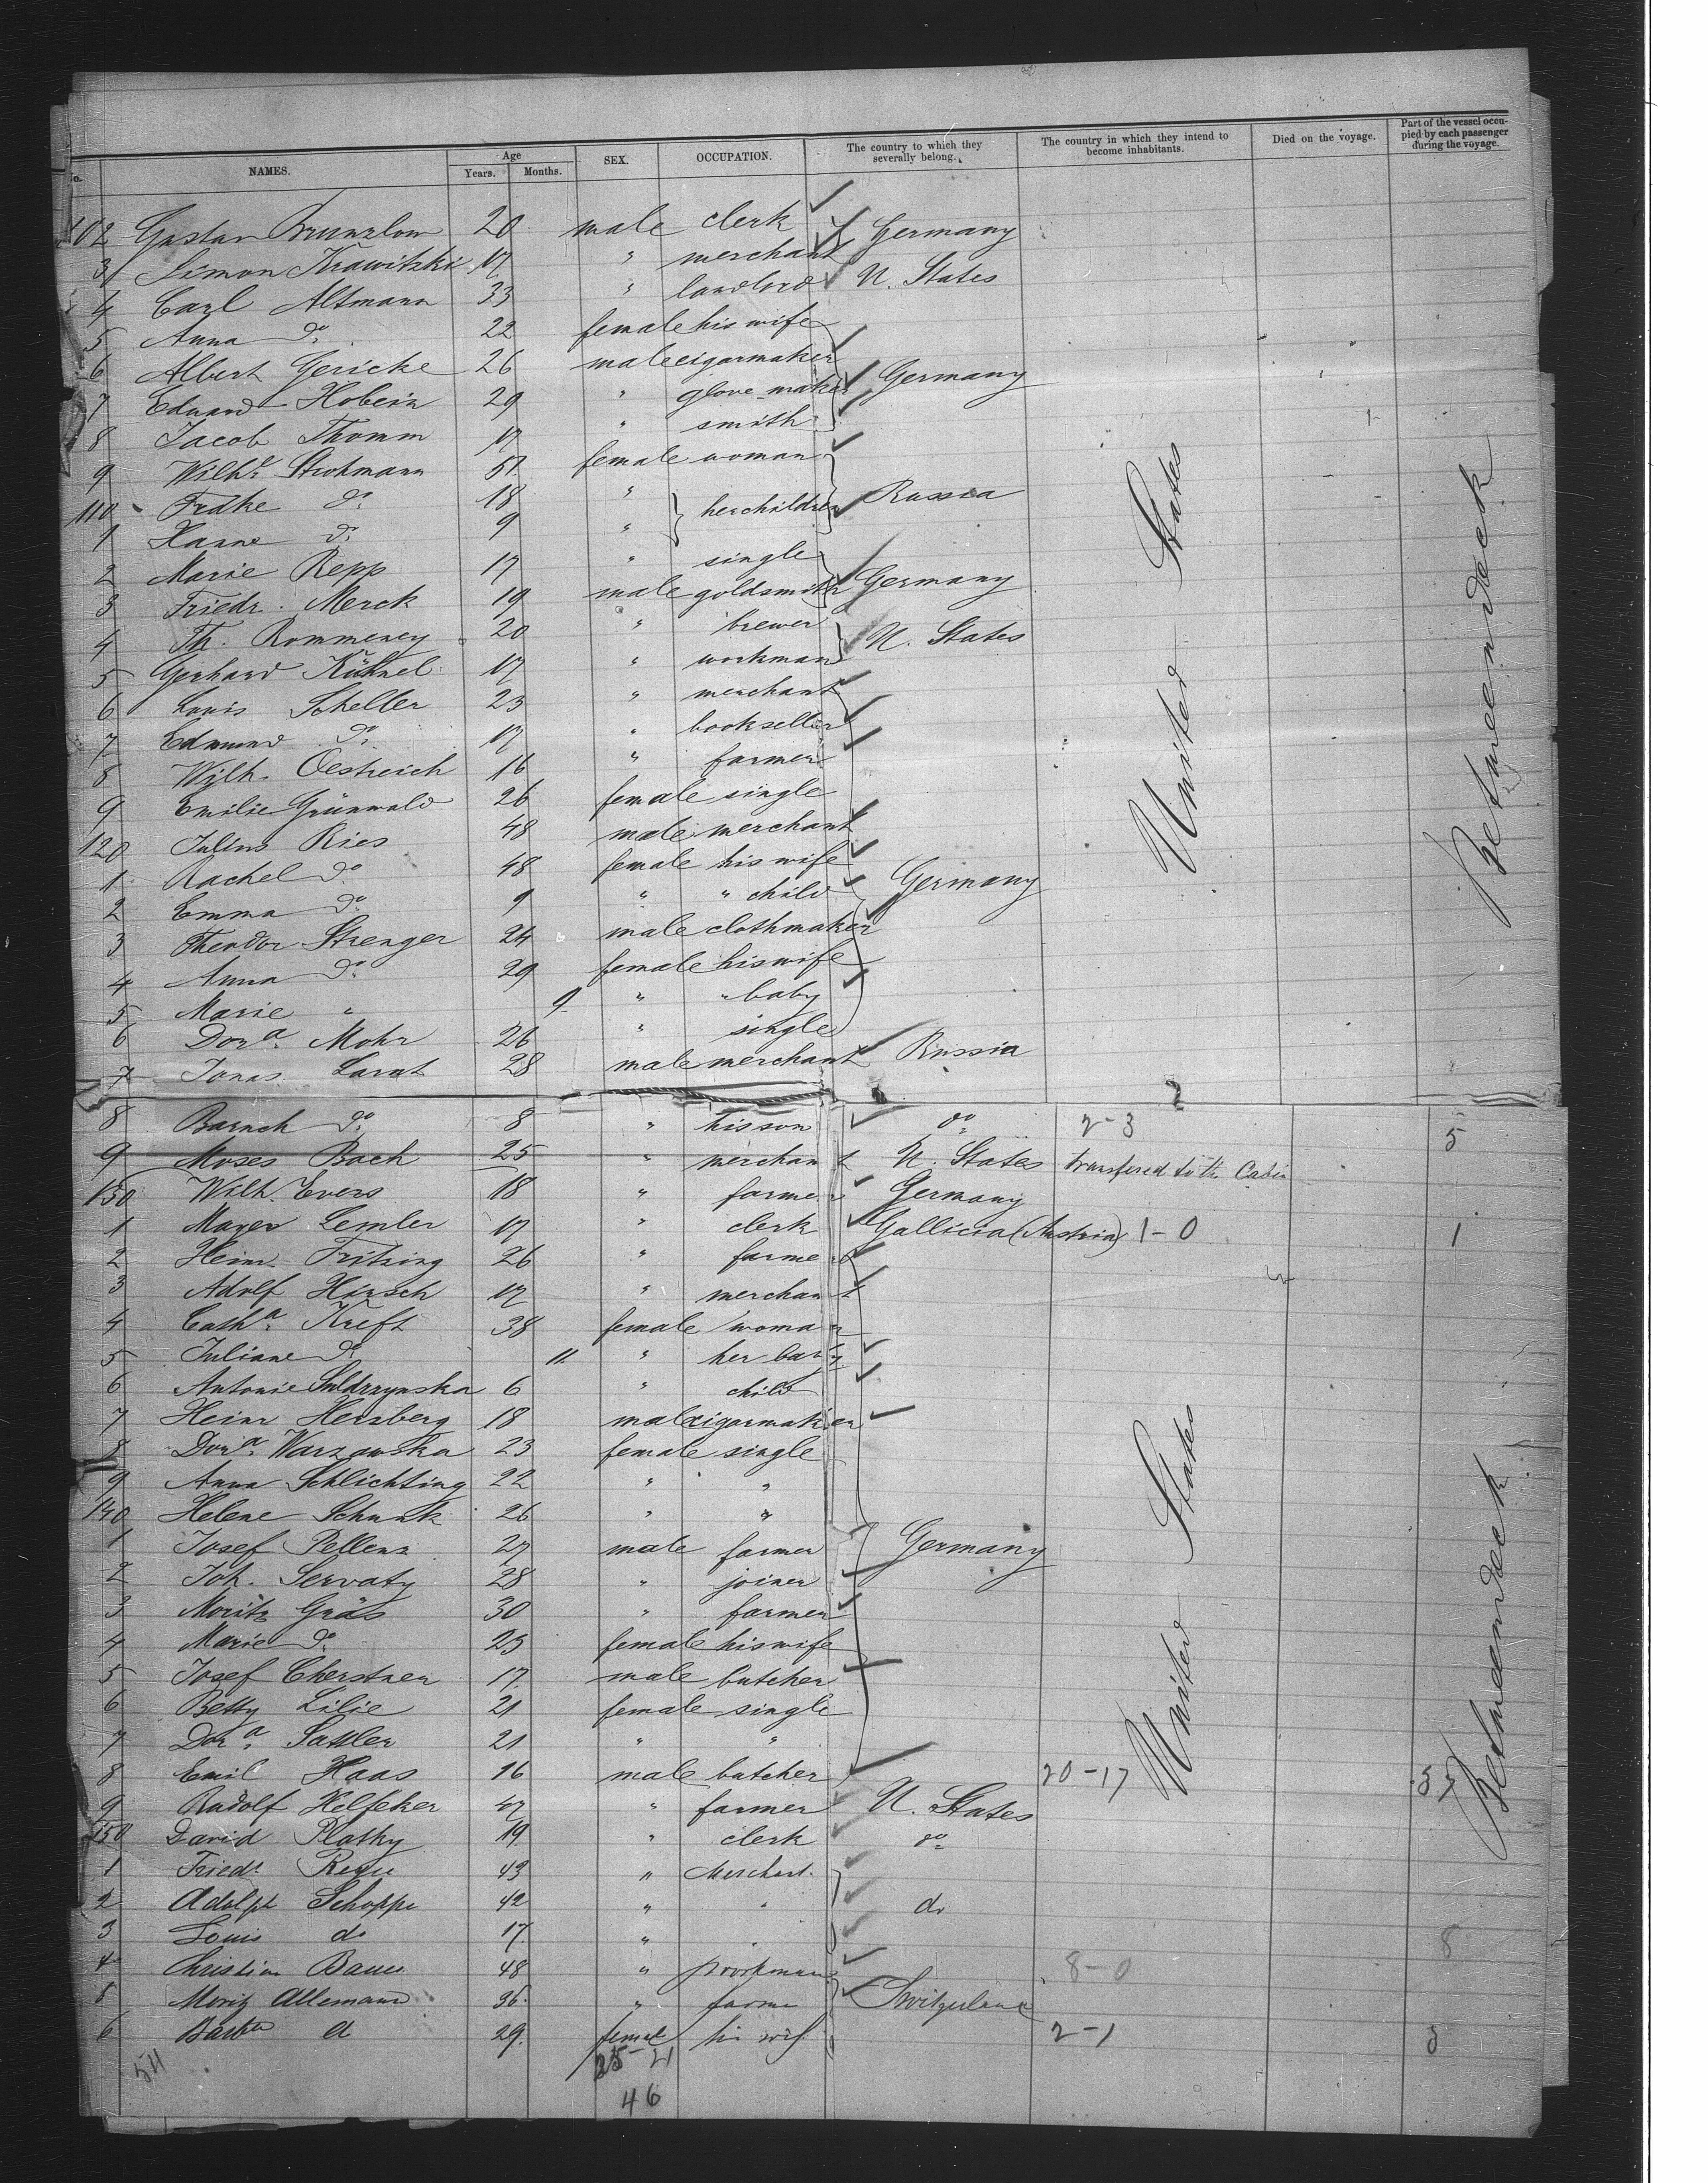 No. NAMES. Age Years. Months. SEX. OCCUPATION. The country to which they severally belong. The country in which they intend to become inhabitants. Died on the voyage. Part of the vessel occupied by each passenger during the voyage.
102 Gustav Brunzlow 20 male clerk Germany
3 Simon Krawitzki 17 " merchant
4 Carl Altmann 33 " landlord U. States
5 Anna do 22 female his wife
6 Albert Gericke 26 male cigarmaker
7 Eduard Hobein 29 " glove-maker Germany
8 Jacob Thomm 17 " smith
9 Wilhe Strohmann 51 female woman
110 Fredke do 18 " her children Russia
1 Hanne do 9 "
2 Marie Repp 17 " single
3 Friedr. Merck 19 male goldsmith Germany
4 Th. Rommeney 20 " brewer
5 Gerhard Kühnel 17 " workman U. States
6 Louis Scheller 23 " merchant
7 Edmund do 17 " bookseller
8 Wilh. Oestreich 16 " farmer
9 Emilie Grünwald 26 female single
120 Julius Ries 48 male merchant
1 Rachel do 48 female his wife
2 Emma do 9 " " child Germany
3 Theodor Strenger 24 male clothmaker
4 Anna do 29 female his wife
5 Marie " 9 " " baby
6 Dora Mohr 26 " single
7 Jonas Larat 28 male merchant Russia
United States
Betweendeck
8 Baruch do 8 " his son do 2-3 5
9 Moses Bach 25 " merchant U. States transfered to the Cabin
130 Wilh. Evers 18 " farmer Germany
1 Mayer Lemler 17 " clerk Gallicia (Austria) 1-0 1
2 Heinr. Fritzing 26 " farmer
3 Adolf Hirsch 17 " merchant
4 Catha Kreft 38 female woman
5 Juliane do 11 " her baby
6 Antonie 6 " child
7 Heinr Herzberg 18 male cigarmaker
8 Dora Warzawska 23 female single
9 Anna Schlichting 22 " "
140 Helene Schunk 26 " "
1 Josef Pellenz 27 male farmer Germany
2 Joh. Servaty 28 " joiner
3 Moritz Gräs 30 " farmer
4 Marie do 25 female his wife
5 Josef Cherstner 17 male butcher
6 Betty Lilie 21 female single
7 Dora Sattler 21 " "
8 Emil Haas 16 male butcher 20-17 37
9 Rudolf Helfeker 47 " farmer U. States
150 David Plathy 19 " clerk do
1 Friedr 43 " Merchant
2 Adolph Schoppe 42 " " do
3 Louis do 17 " "
4 Christian Bauer 48 " workman 8-0 8
5 Moriz Allemann 36 " farmer Switzerland
6 29 female his wife 2-1 3
United States
Betweendeck
511
25-21
46